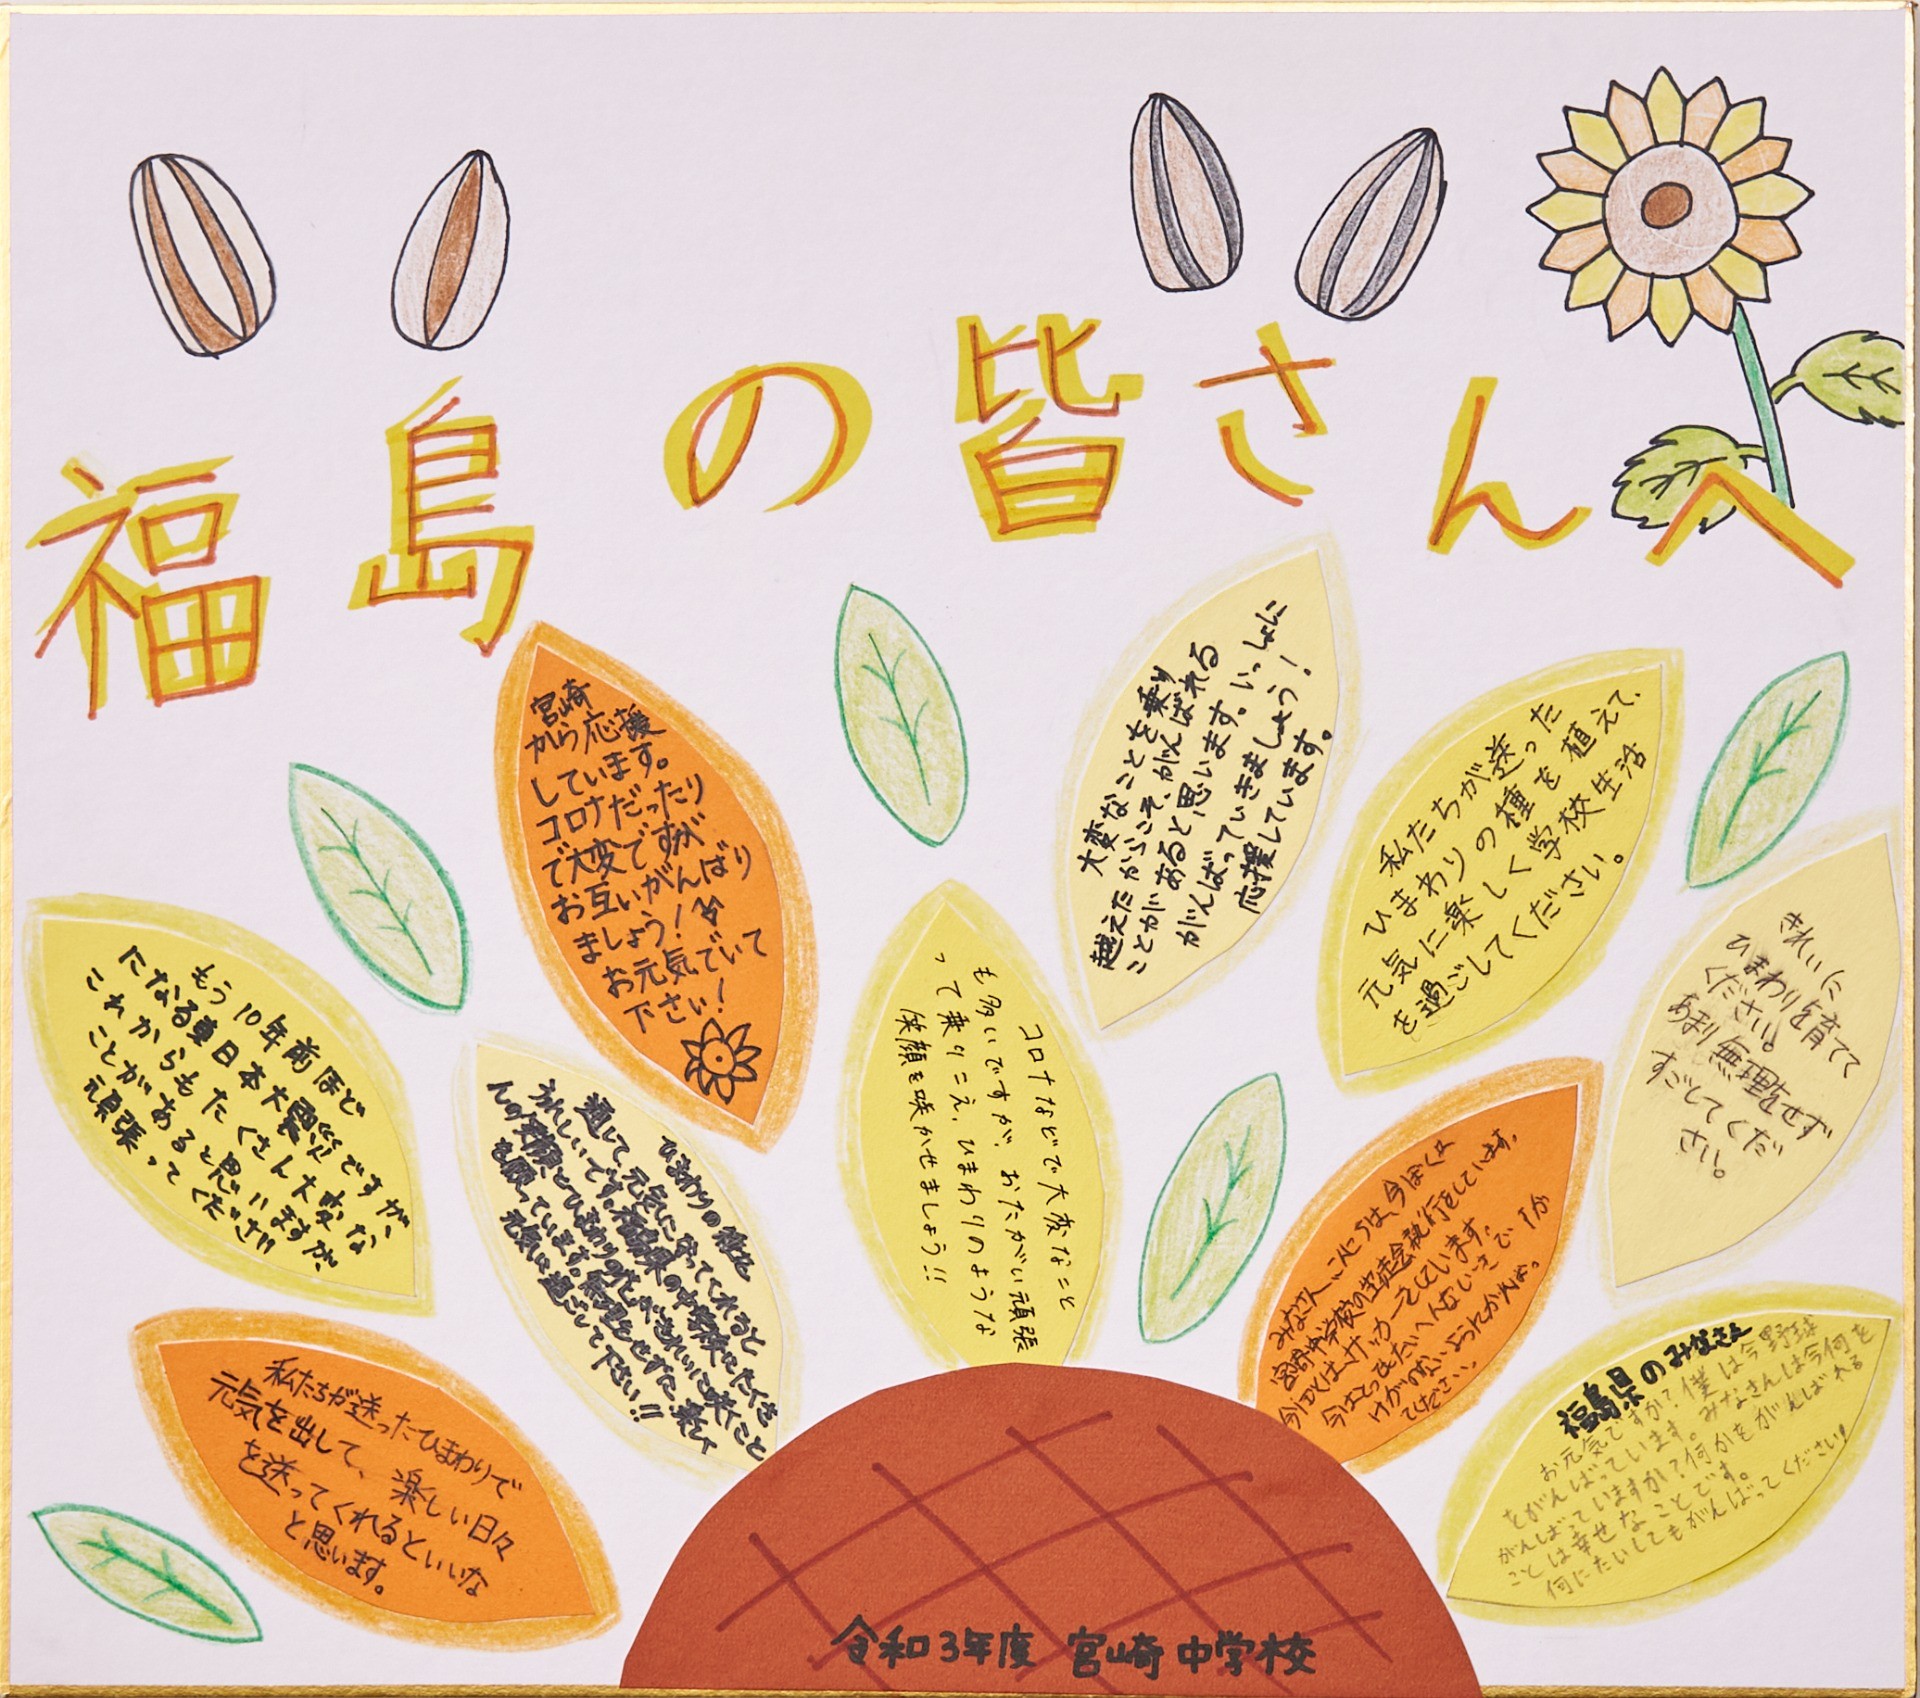 福島の皆さんへ
宮崎
から応援
しています。
コロナだったり
で大変ですが
お互いがんばり
ましょう!
お元気でいて
下さい!
大変なことを乗り
越えたからこそ、がんばれる
ことがあると思います。いっしょに
がんばっていきましょう!
応援しています。
私たちが送った
ひまわりの種を植えて、
元気に楽しく学校生活
を過ごしてください。
きれいに
ひまわりを育てて
ください。
あまり無理をせず
すごしてくだ
さい。
もう10年前ほど
になる東日本大震災ですが、
これからもたくさん大変な
ことがあると思いますが、
頑張ってください!!
ひまわりの種を
通して、元気になってくれると
うれしいです。福島県の中学校にたくさ
んの笑顔とひまわりの花がきれいに咲くこと
を願っています。無理をせずに、楽しく
元気に過ごして下さい!!
コロナなどで大変なこと
も多いですが、おたがい頑張
って乗りこえ、ひまわりのような
笑顔を咲かせましょう!!
みなさん、こんにちは、今ぼくは
宮崎中学校の生徒会執行をしています。
福島県のみなさん
お元気ですか?僕は今野球
をがんばっています。みなさんは今何を
がんばっていますか?何かをがんばれる
ことは幸せなことです。
何にたいしてもがんばってください!
私たちが送ったひまわりで
元気を出して、楽しい日々
を送ってくれるといいな
と思います。
令和3年度 宮崎中学校